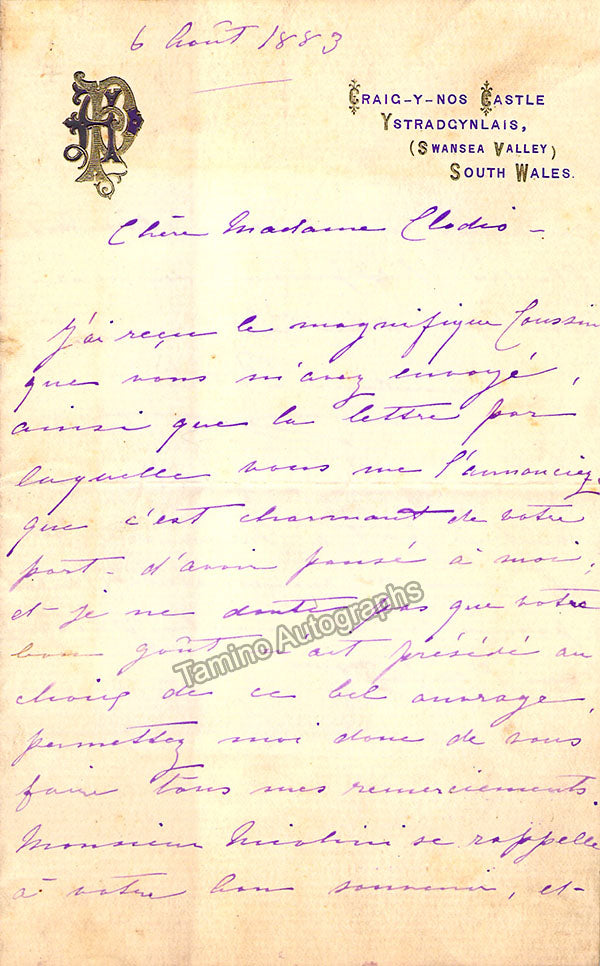 6 Août 1883
AP
CRAIG-Y-NOS CASTLE
YSTRADGYNLAIS,
(SWANSEA VALLEY)
SOUTH WALES.
Chère Madame Clodio -
J'ai reçu le magnifique Coussin
que vous m'avez envoyé,
ainsi que la lettre par
laquelle vous me l'annonciez.
que c'est charmant de votre
part - d'avoir pensé à moi,
et je ne doute pas que votre
bon goût n'ait présédé au
choix de ce bel ouvrage,
permettez moi donc de vous
faire tous mes remerciements.
Monsieur Nicolini se rappelle
à votre bon souvenir, et
Tamino Autographs